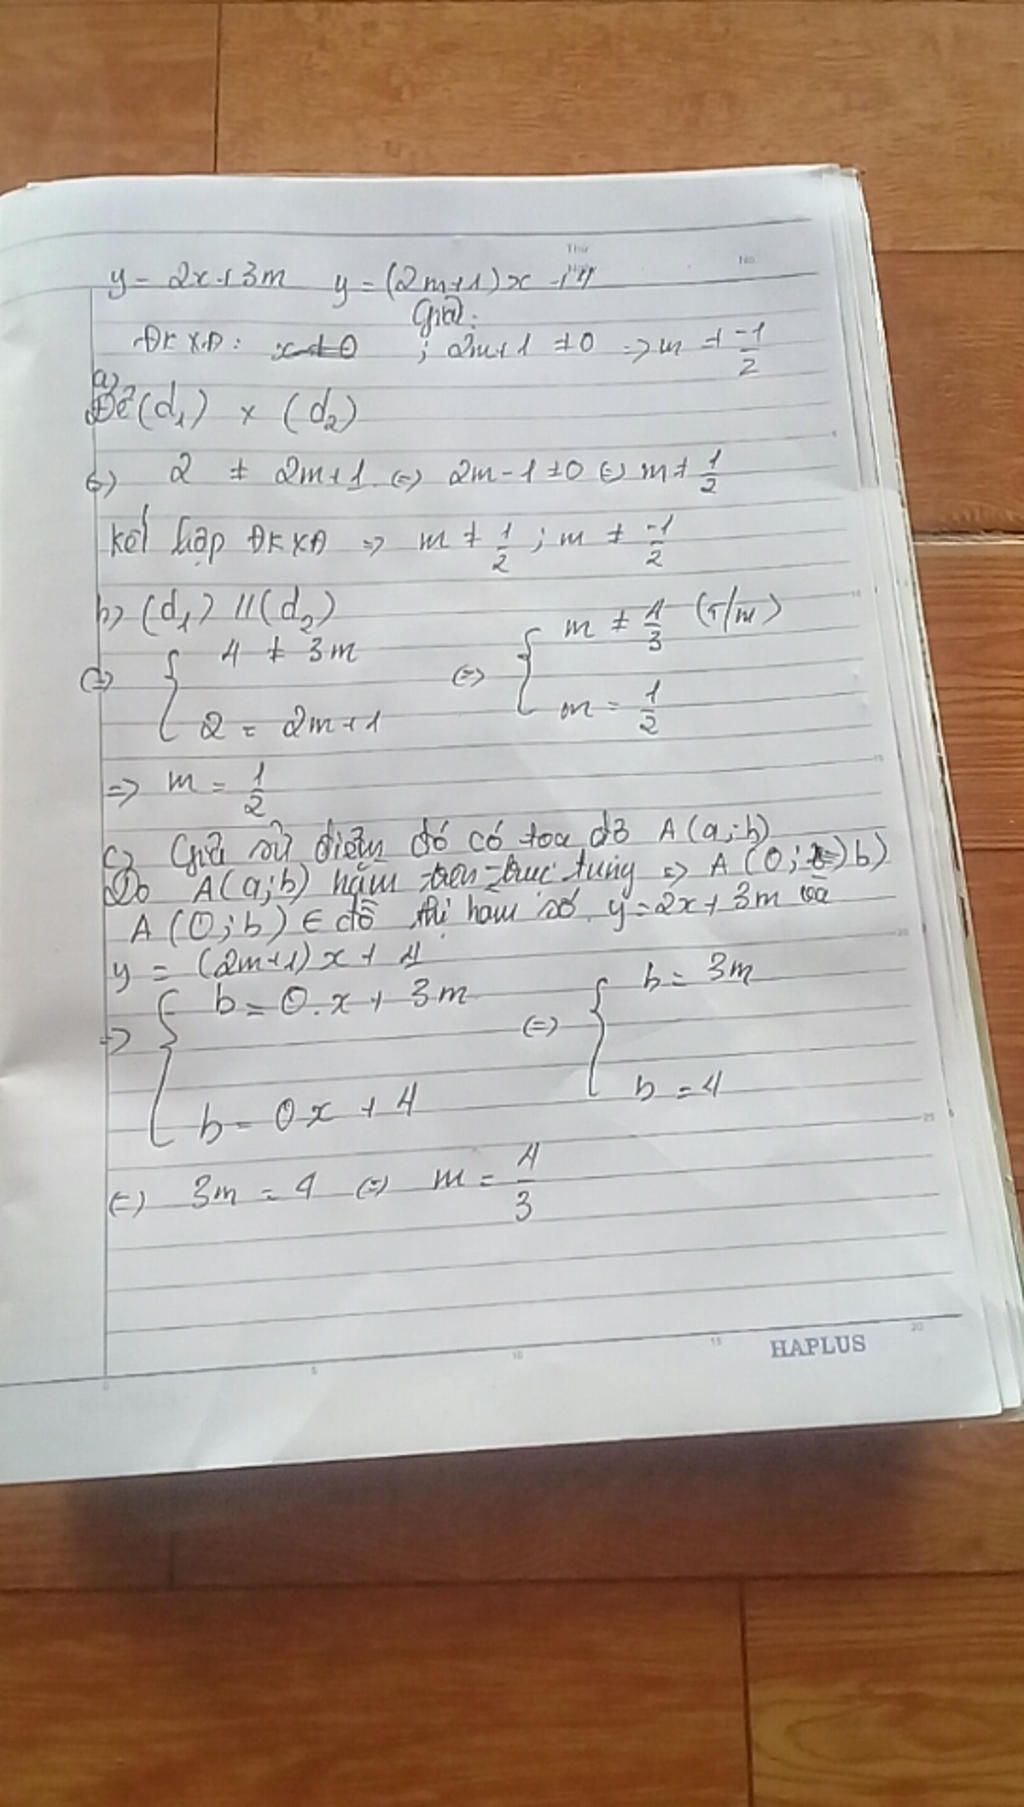 Thứ
No.
y = 2x+3m y = (2m+1)x + 4
Giải:
ĐKXĐ: x≠0 ; 2m+1 ≠0 => m ≠ -1/2
a)
Để (d₁) x (d₂)
<=> 2 ≠ 2m+1 <=> 2m-1≠0 <=> m≠ 1/2
kết hợp ĐKXĐ => m ≠ 1/2 ; m ≠ -1/2
b) (d₁) // (d₂)
<=> { 4 ≠ 3m <=> { m ≠ 4/3 (T/m)
2 = 2m+1 m = 1/2
=> m = 1/2
c) Giả sử điểm đó có tọa độ A(a;b)
Do A(a;b) nằm trên trục tung => A(0;b)
A(0;b) ∈ đồ thị hàm số y=2x+3m và
y = (2m+1)x + 4
=> { b = 0.x + 3m <=> { b = 3m
b = 0x + 4 b = 4
<=> 3m = 4 <=> m = 4/3
HAPLUS
0 5 10 15 20